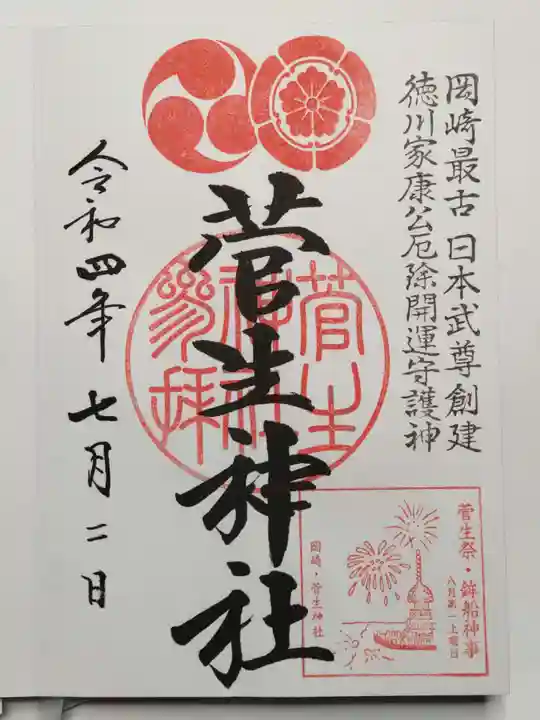 岡崎最古 日本武尊創建
徳川家康公厄除開運守護神
菅生神社
菅生神社参拝
令和四年七月二日
菅生祭・鉾船神事
八月第一土曜日
岡崎・菅生神社